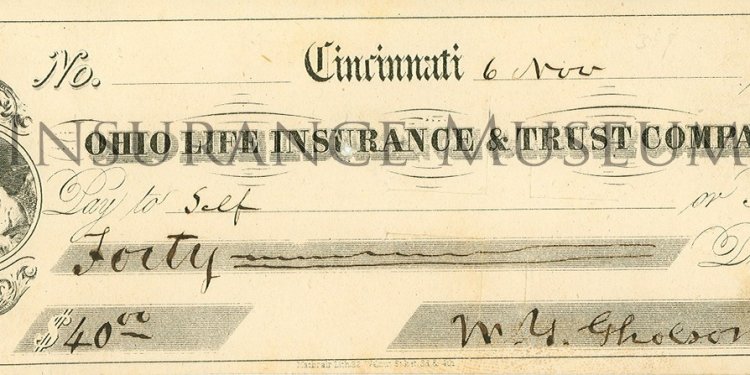 No. Cincinnati 6 Nov
INSURANCE MUSEUM
OHIO LIFE INSURANCE & TRUST COMPA
Pay to Self or
Forty D
$40.00 W. Y. Gholson